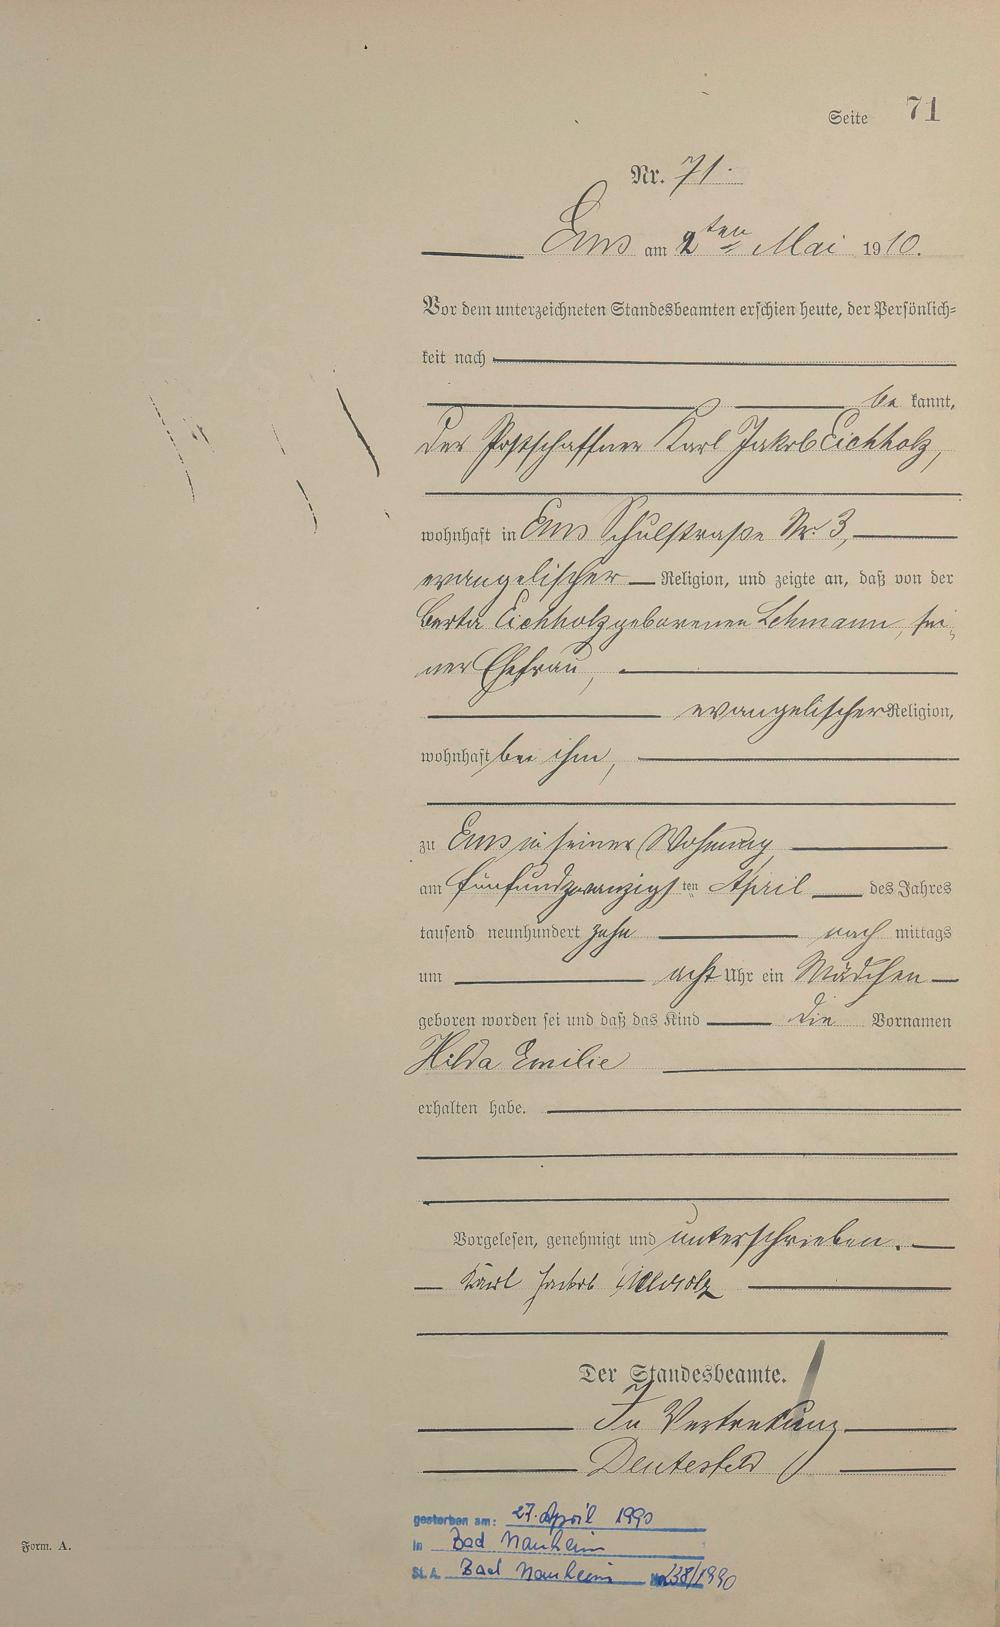 Seite 71
Nr. 71.
Ems am 2ten Mai 1910.
Vor dem unterzeichneten Standesbeamten erschien heute, der Persönlich=
keit nach
be kannt,
der Postschaffner Karl Jakob Eichholz,
wohnhaft in Ems Schulstraße Nr. 3,
evangelischer Religion, und zeigte an, daß von der
Berta Eichholz geborenen Lehmann, sei-
ner Ehefrau,
evangelischer Religion,
wohnhaft bei ihm,
zu Ems in seiner Wohnung
am fünfundzwanzigsten April des Jahres
tausend neunhundert zehn nach mittags
um acht Uhr ein Mädchen
geboren worden sei und daß das Kind die Vornamen
Hilda Emilie
erhalten habe.
Vorgelesen, genehmigt und unterschrieben.
Karl Jakob Eichholz
Der Standesbeamte.
In Vertretung
gestorben am: 27. April 1990
in Bad Nauheim
St. A. Bad Nauheim 238/1990
Form. A.